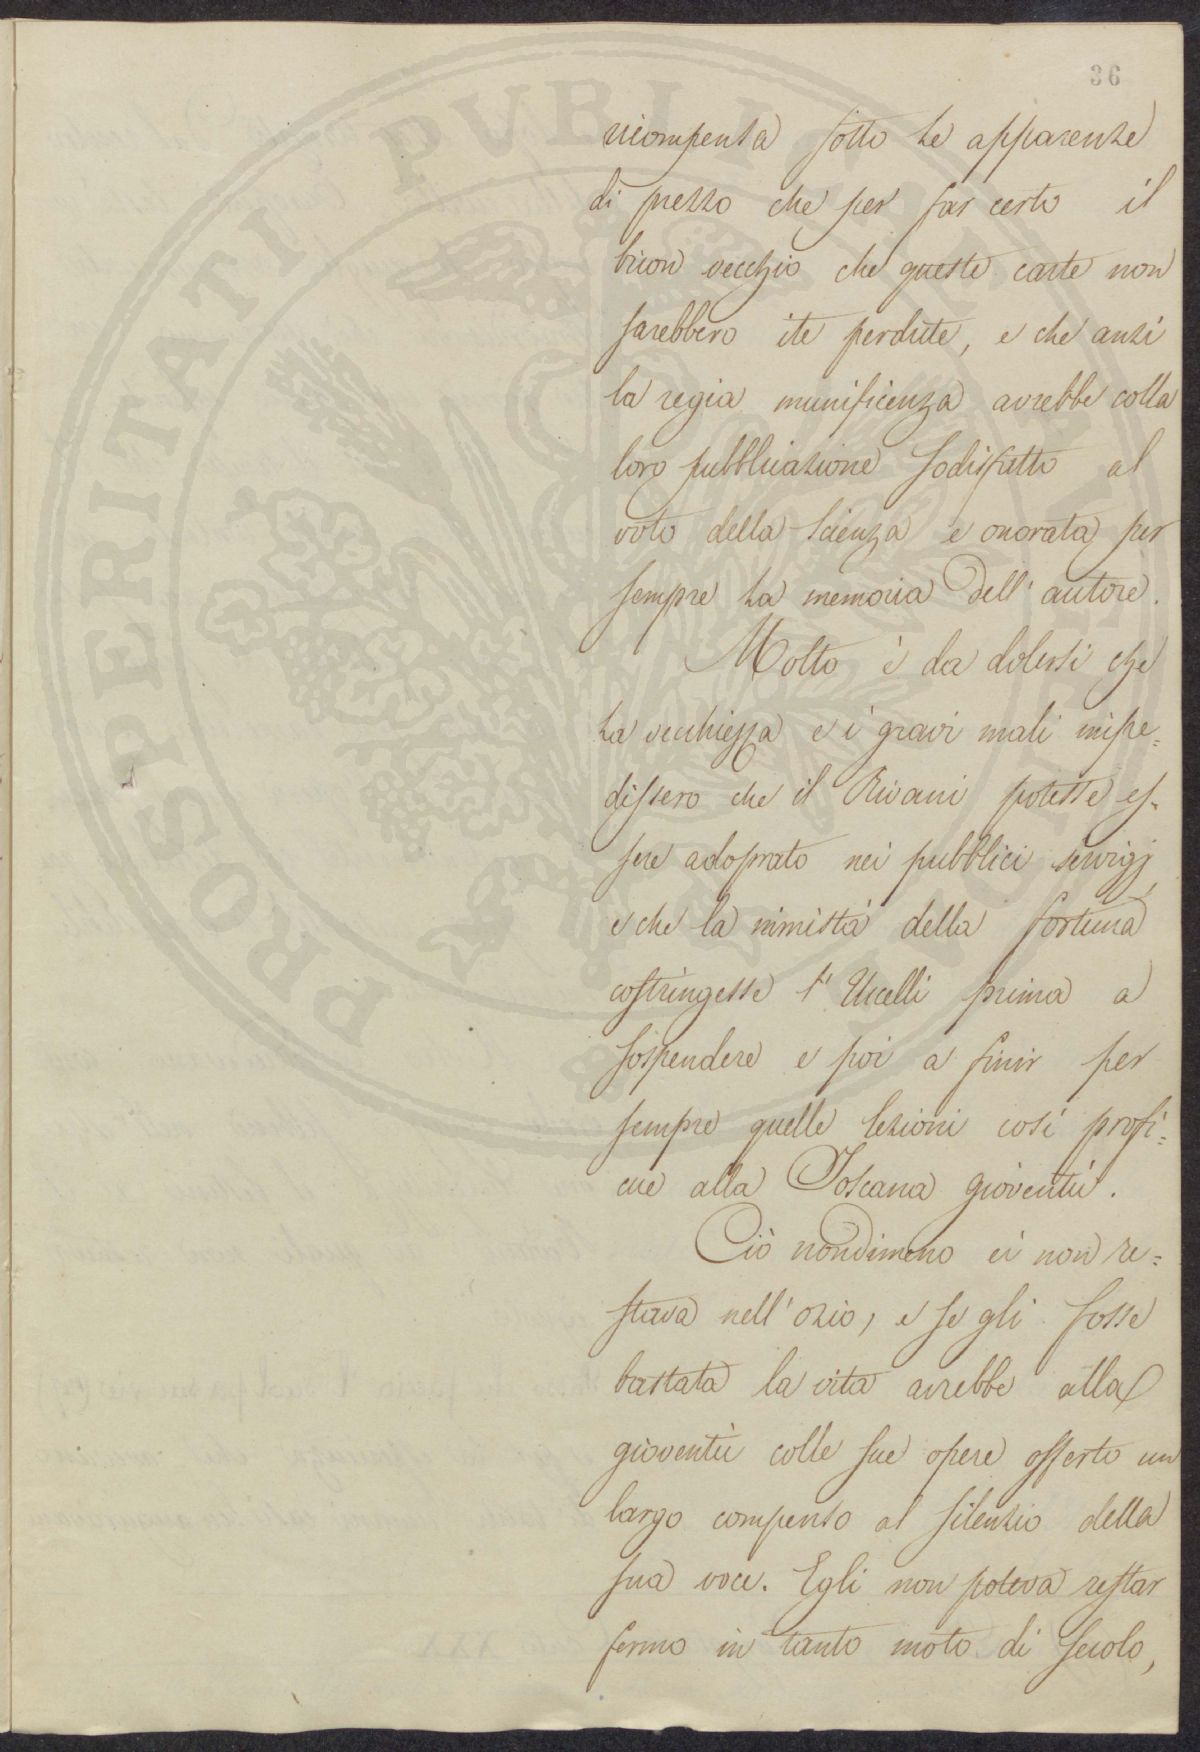 36
ricompensa sotto le apparenze
di prezzo che per far certo il
buon vecchio che queste carte non
sarebbero ite perdute, e che anzi
la regia munificenza avrebbe colla
loro pubblicazione sodisfatto al
voto della scienza e onorata per
sempre la memoria dell' autore.
Molto è da dolersi che
la vecchiezza e i gravi mali impe=
dissero che il Rivani potesse es-
sere adoprato nei pubblici servigj,
e che la nimistà della fortuna
costringesse l' Uccelli prima a
sospendere e poi a finir per
sempre quelle lezioni così profi=
cue alla Toscana gioventù.
Ciò nondimeno ei non re=
stava nell' ozio, e se gli fosse
bastata la vita avrebbe alla
gioventù colle sue opere offerto un
largo compenso al silenzio della
sua voce. Egli non poteva restar
fermo in tanto moto di secolo,
PROSPERITATI PUBLI